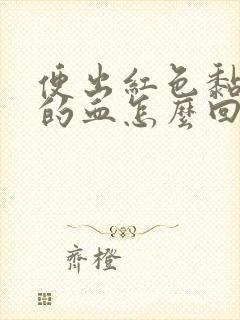 便出紅色黏
的血怎麼回
齊橙